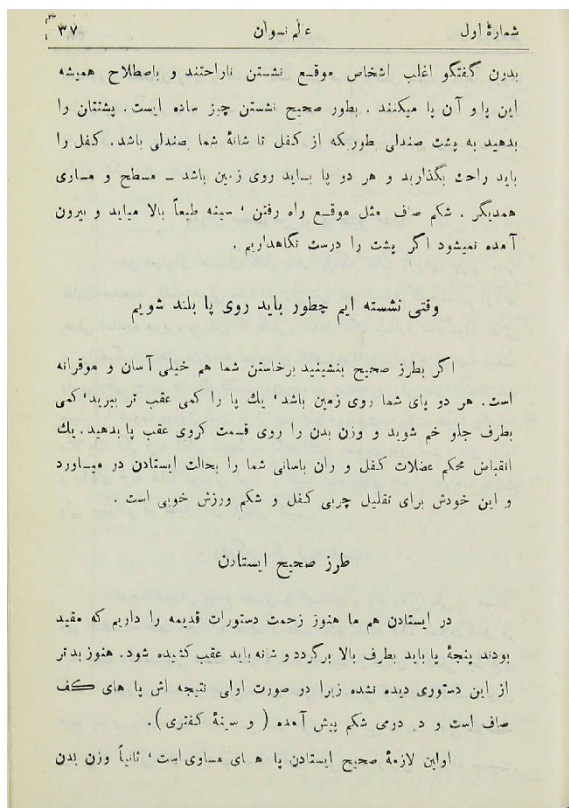 شمارهٔ اول عالم نسوان ۳۷
بدرن گفتگو اغلب اشخاص موقع نشستن ناراحتند و باصطلاح همیشه
این پا و آن پا میکنند . بطور صحیح نشستن چیز ساده ایست . پشتتان را
بدهید به پشت صندلی بطوریکه از کفل تا شانهٔ شما صندلی باشد. کفل را
باید راحت بگذارید و هر دو پا باید روی زمین باشد – مسطح و مساوی
همدیگر . شکم صاف مثل موقع راه رفتن ، سینه طبعاً بالا میاید و بیرون
آمده نمیشود اگر پشت را درست نگاهداریم .
وقتی نشسته ایم چطور باید روی پا بلند شویم
اگر بطرز صحیح بنشینید برخاستن شما هم خیلی آسان و موقرانه
است . هر دو پای شما روی زمین باشد ، یك پا را کمی عقب تر ببرید، کمی
بطرف جلو خم شوید و وزن بدن را روی قسمت کروی عقب پا بدهید . یك
انقباض محکم عضلات کفل و ران باسانی شما را بحالت ایستادن در میاورد
و این خودش برای تقلیل چربی کفل و شکم ورزش خوبی است .
طرز صحیح ایستادن
در ایستادن هم ما هنوز زحمت دستورات قدیمه را داریم که مقید
بودند پنجهٔ پا باید بطرف بالا برگردد و شانه باید عقب کشیده شود. هنوز بدتر
از این دستوری دیده نشده زیرا در صورت اولی نتیجه اش پا های کف
صاف است و در دومی شکم پیش آمده ( و سینهٔ کفتری ).
اولین لازمهٔ صحیح ایستادن پا های مساوی است ، ثانیاً وزن بدن